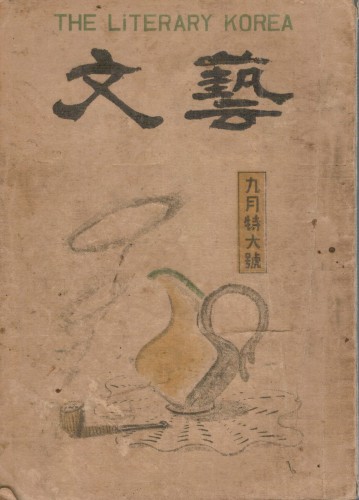 THE LiTERARY KOREA
文藝
九月特大號